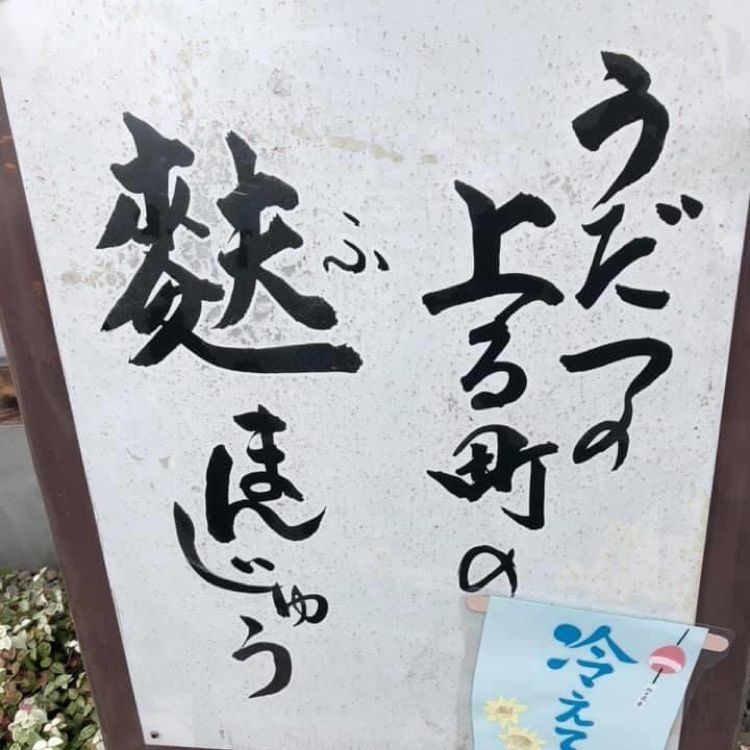 うだつの
上る町の
麩
ふ
まんじゅう
冷えて